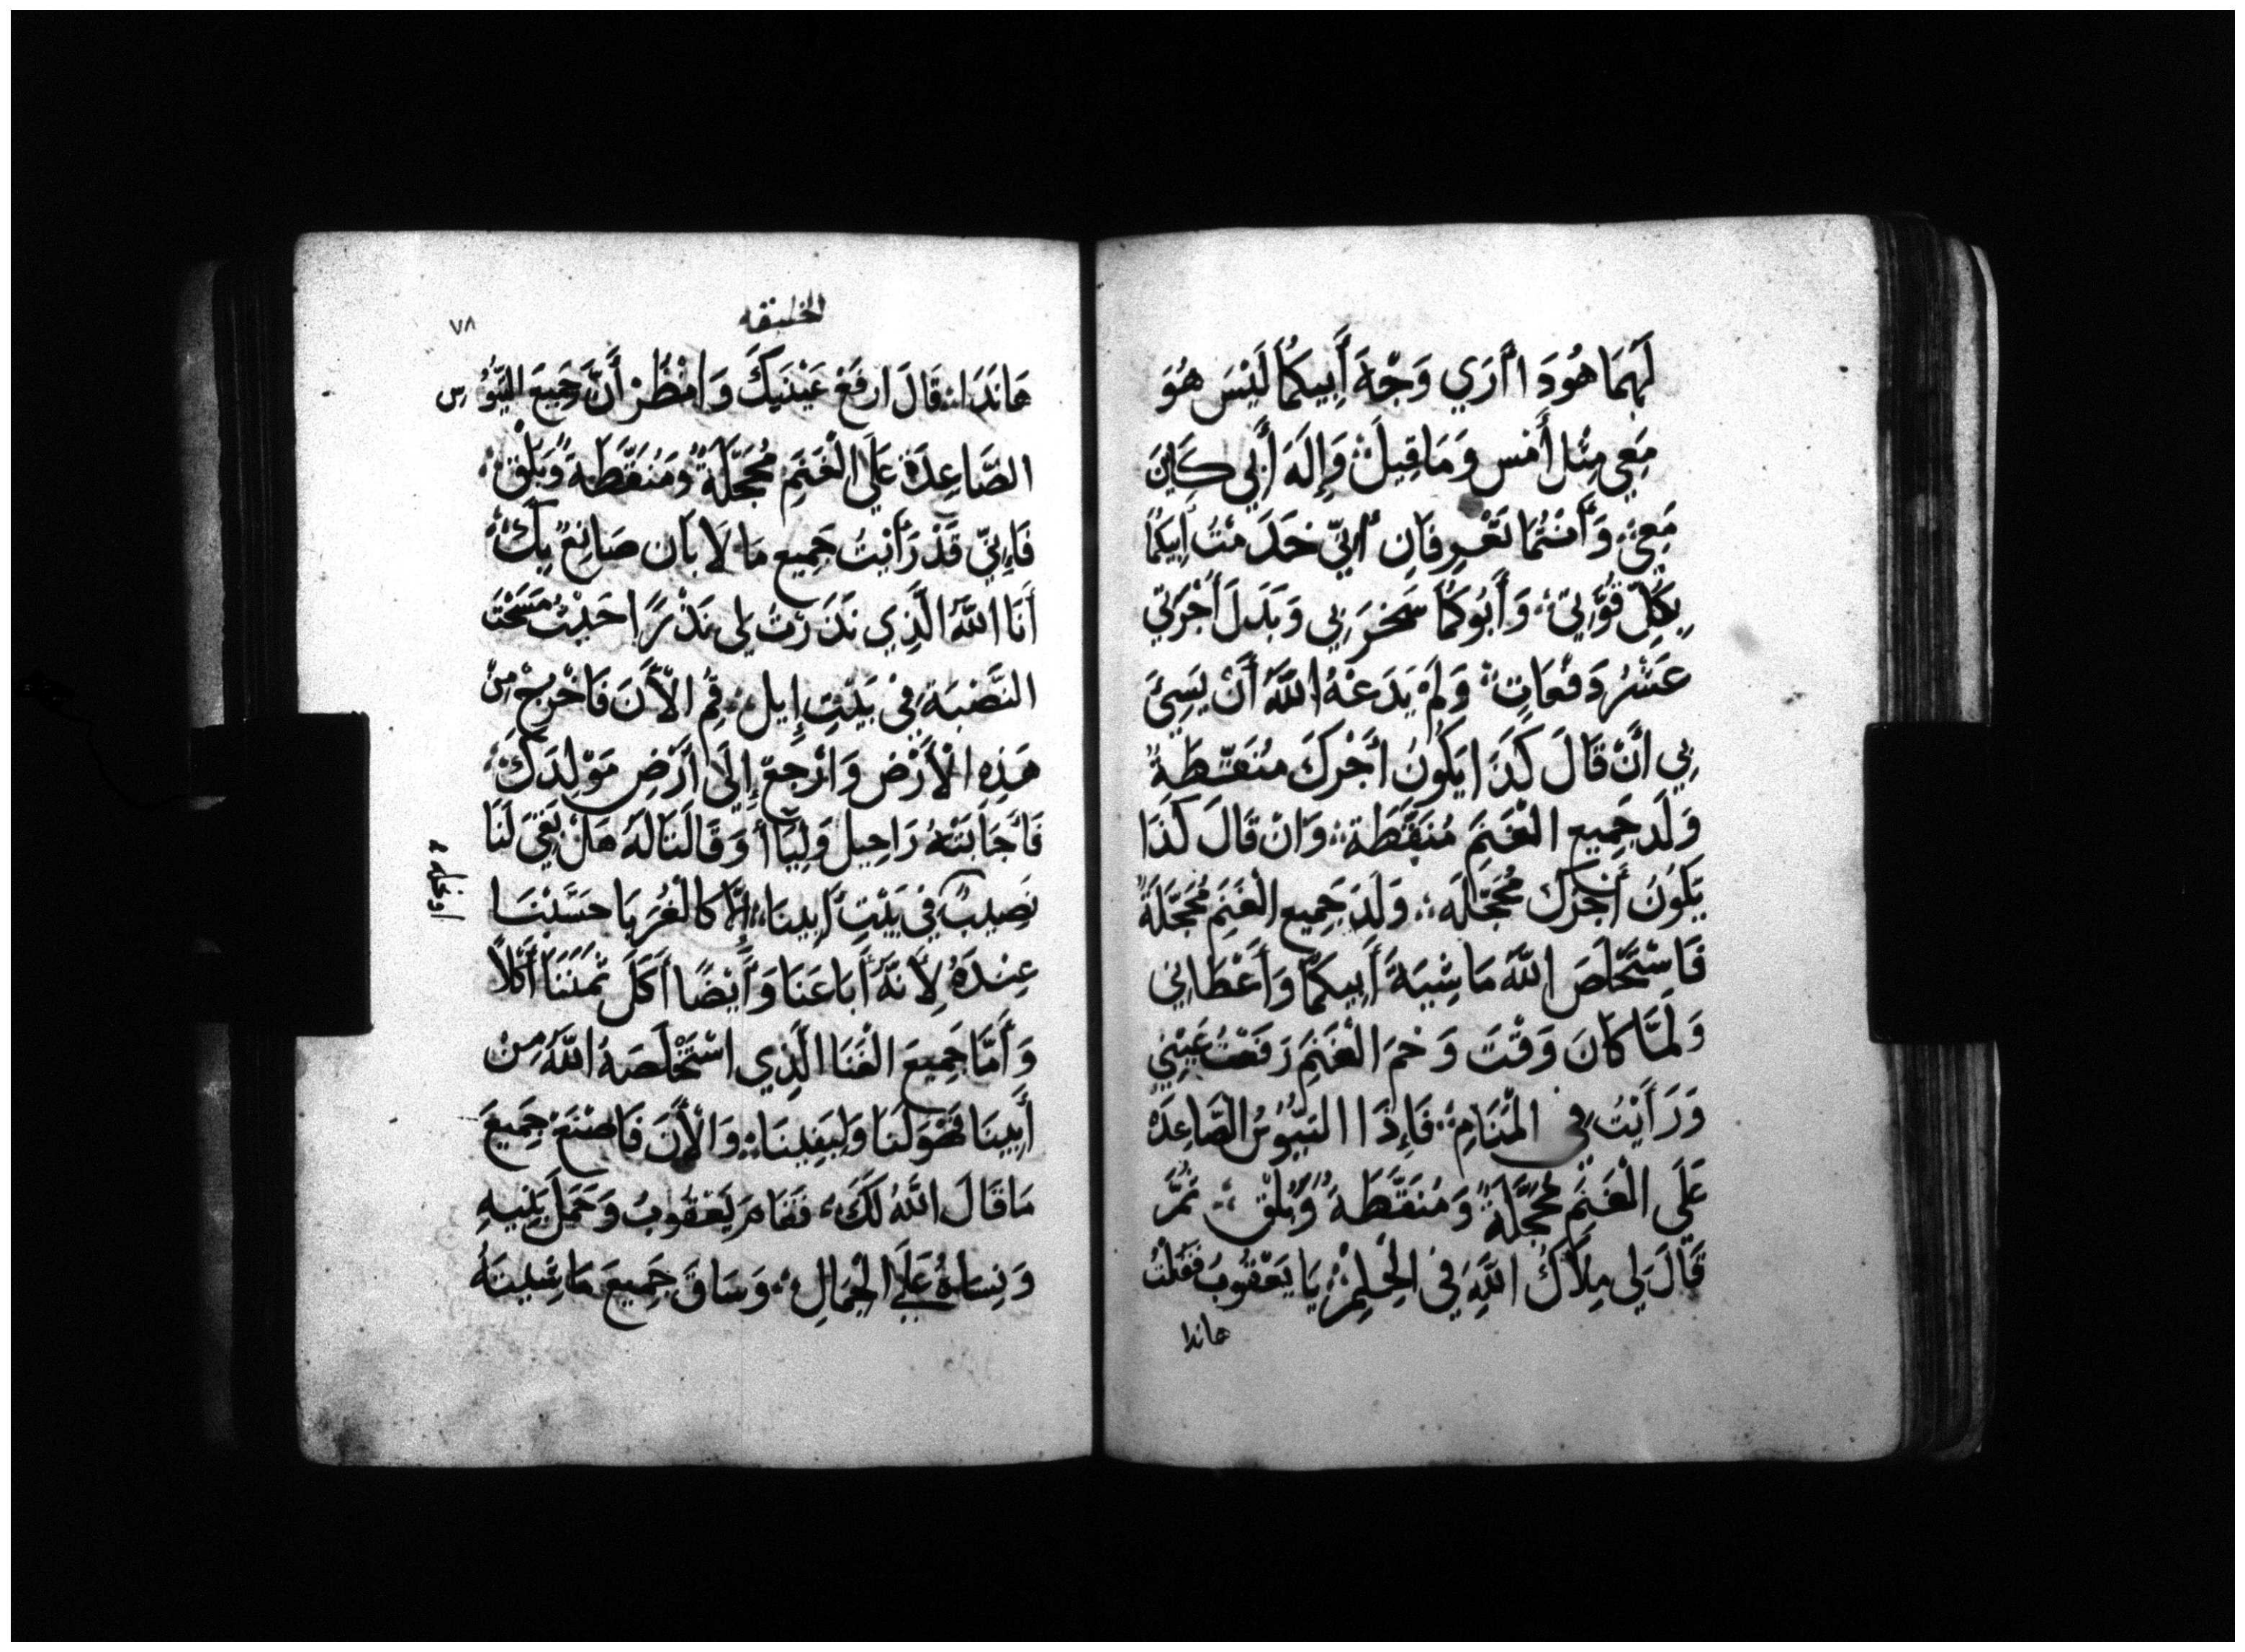 لَهُمَا هُودَا أَرَي وَجْهَ أَبِيكُمَا لَيْسَ هُوَ
مَعِي مِثْل أَمس وَمَا قِيلَ وَإِلَهَ أَبِي كَايِنَ
مَعِي وَأَنْتُمَا تَعْرِفَانِ أَنِّي خَدَمْتُ أَبِيكُمَا
بِكُلِّ قُوَّتِي وَأَبُوكُمَا سَخِرَ بِي وَبَدَلَ أُجْرَتِي
عَشْرُ دَفْعَاتٍ وَلَمْ يَدَعْهُ اللَّهُ أَنْ يَسِئَ
بِي أَنْ قَالَ كَذَا يَكُونُ أَجْرَكَ مُنَقَّطَةً
وَلَد جَمِيع الغَنَمَ مُنَقَّطَة وَان قَالَ كَذَا
يَكُونُ أَجْرَكَ مُحَجَّلَه وَلَدَ جَمِيع الغَنَمِ مُحَجَّلَةً
فَاسْتَخْلَصَ اللَّهُ مَاشِيَةَ أَبِيكُمَا وَأَعْطَانِي
وَلَمَّا كَانَ وَقْتَ وَحَمَ الغَنَمِ رَفَعْتُ عَيْنِي
وَرَأَيْتُ فِي الْمَنَامِ فَإِذَا التيُوسُ الصَّاعِدَه
عَلَى الْغَنَمِ مُحَجَّلَةً وَمُنَقَّطَةً وَبُلْق ثُمَّ
قَالَ لِي مِلاَكُ اللَّهِ فِي الْحِلِم يَا يَعْقُوبُ فَقُلْتُ
هاندا
الخليقه
٧٨
هَانَدَا قَالَ ارفَعْ عَيْنَيكَ وَانْظُرْ أَنَّ جَمِيعَ التيُوس
الصَّاعِدَة عَلَي الْغَنَمِ مُحَجَّلَةً وَمُنَقَّطَةً وَبُلْق
فَإِنِّي قَدْ رَأَيْتُ جَمِيع مَا لاَبَان صَانِعٌ بِكَ
أَنَا اللَّهُ الَّذِي نَذَرْتَ لِي نَذْرًا حَيْثُ مَسَحْتَ
النَّصْبَة فِي بَيْتِ إِيل قُمِ الأَنَ فَاخْرُجْ مِنْ
هَذِهِ الأَرْضِ وَارْجِعْ إِلَى أَرْضِ مَوْلِدَكَ
فَأَجَابَتْهُ رَاحِيل وَلِيَا أ وَقَالَتَا لَهُ هَلْ بَقِيَ لَنَا
نَصِيبٌ فِي بَيْتِ أَبِينَا إِلاَّ كَالْغُرَبَا حَسَبْنَا
عِنْدَهُ لِأَنَّهُ أَبَاعَنَا وَأَيْضًا أَكَلَ ثَمَنَنَا أَكْلاً
وَأَمَّا جَمِيعَ الغَنَا الَّذِي اسْتَخْلَصَهُ اللَّهُ مِنْ
أَبِينَا فَهُوَ لَنَا وَلِبَنِينَا وَالأَنَ فَاصْنَعْ جَمِيعَ
مَا قَالَ اللَّهُ لَكَ فَقَامَ يَعْقُوبُ وَحَمَلَ بَنِيهِ
وَنِسَاهُ عَلَى الْجِمَالِ وَسَاقَ جَمِيعَ مَاشِيَتَهُ